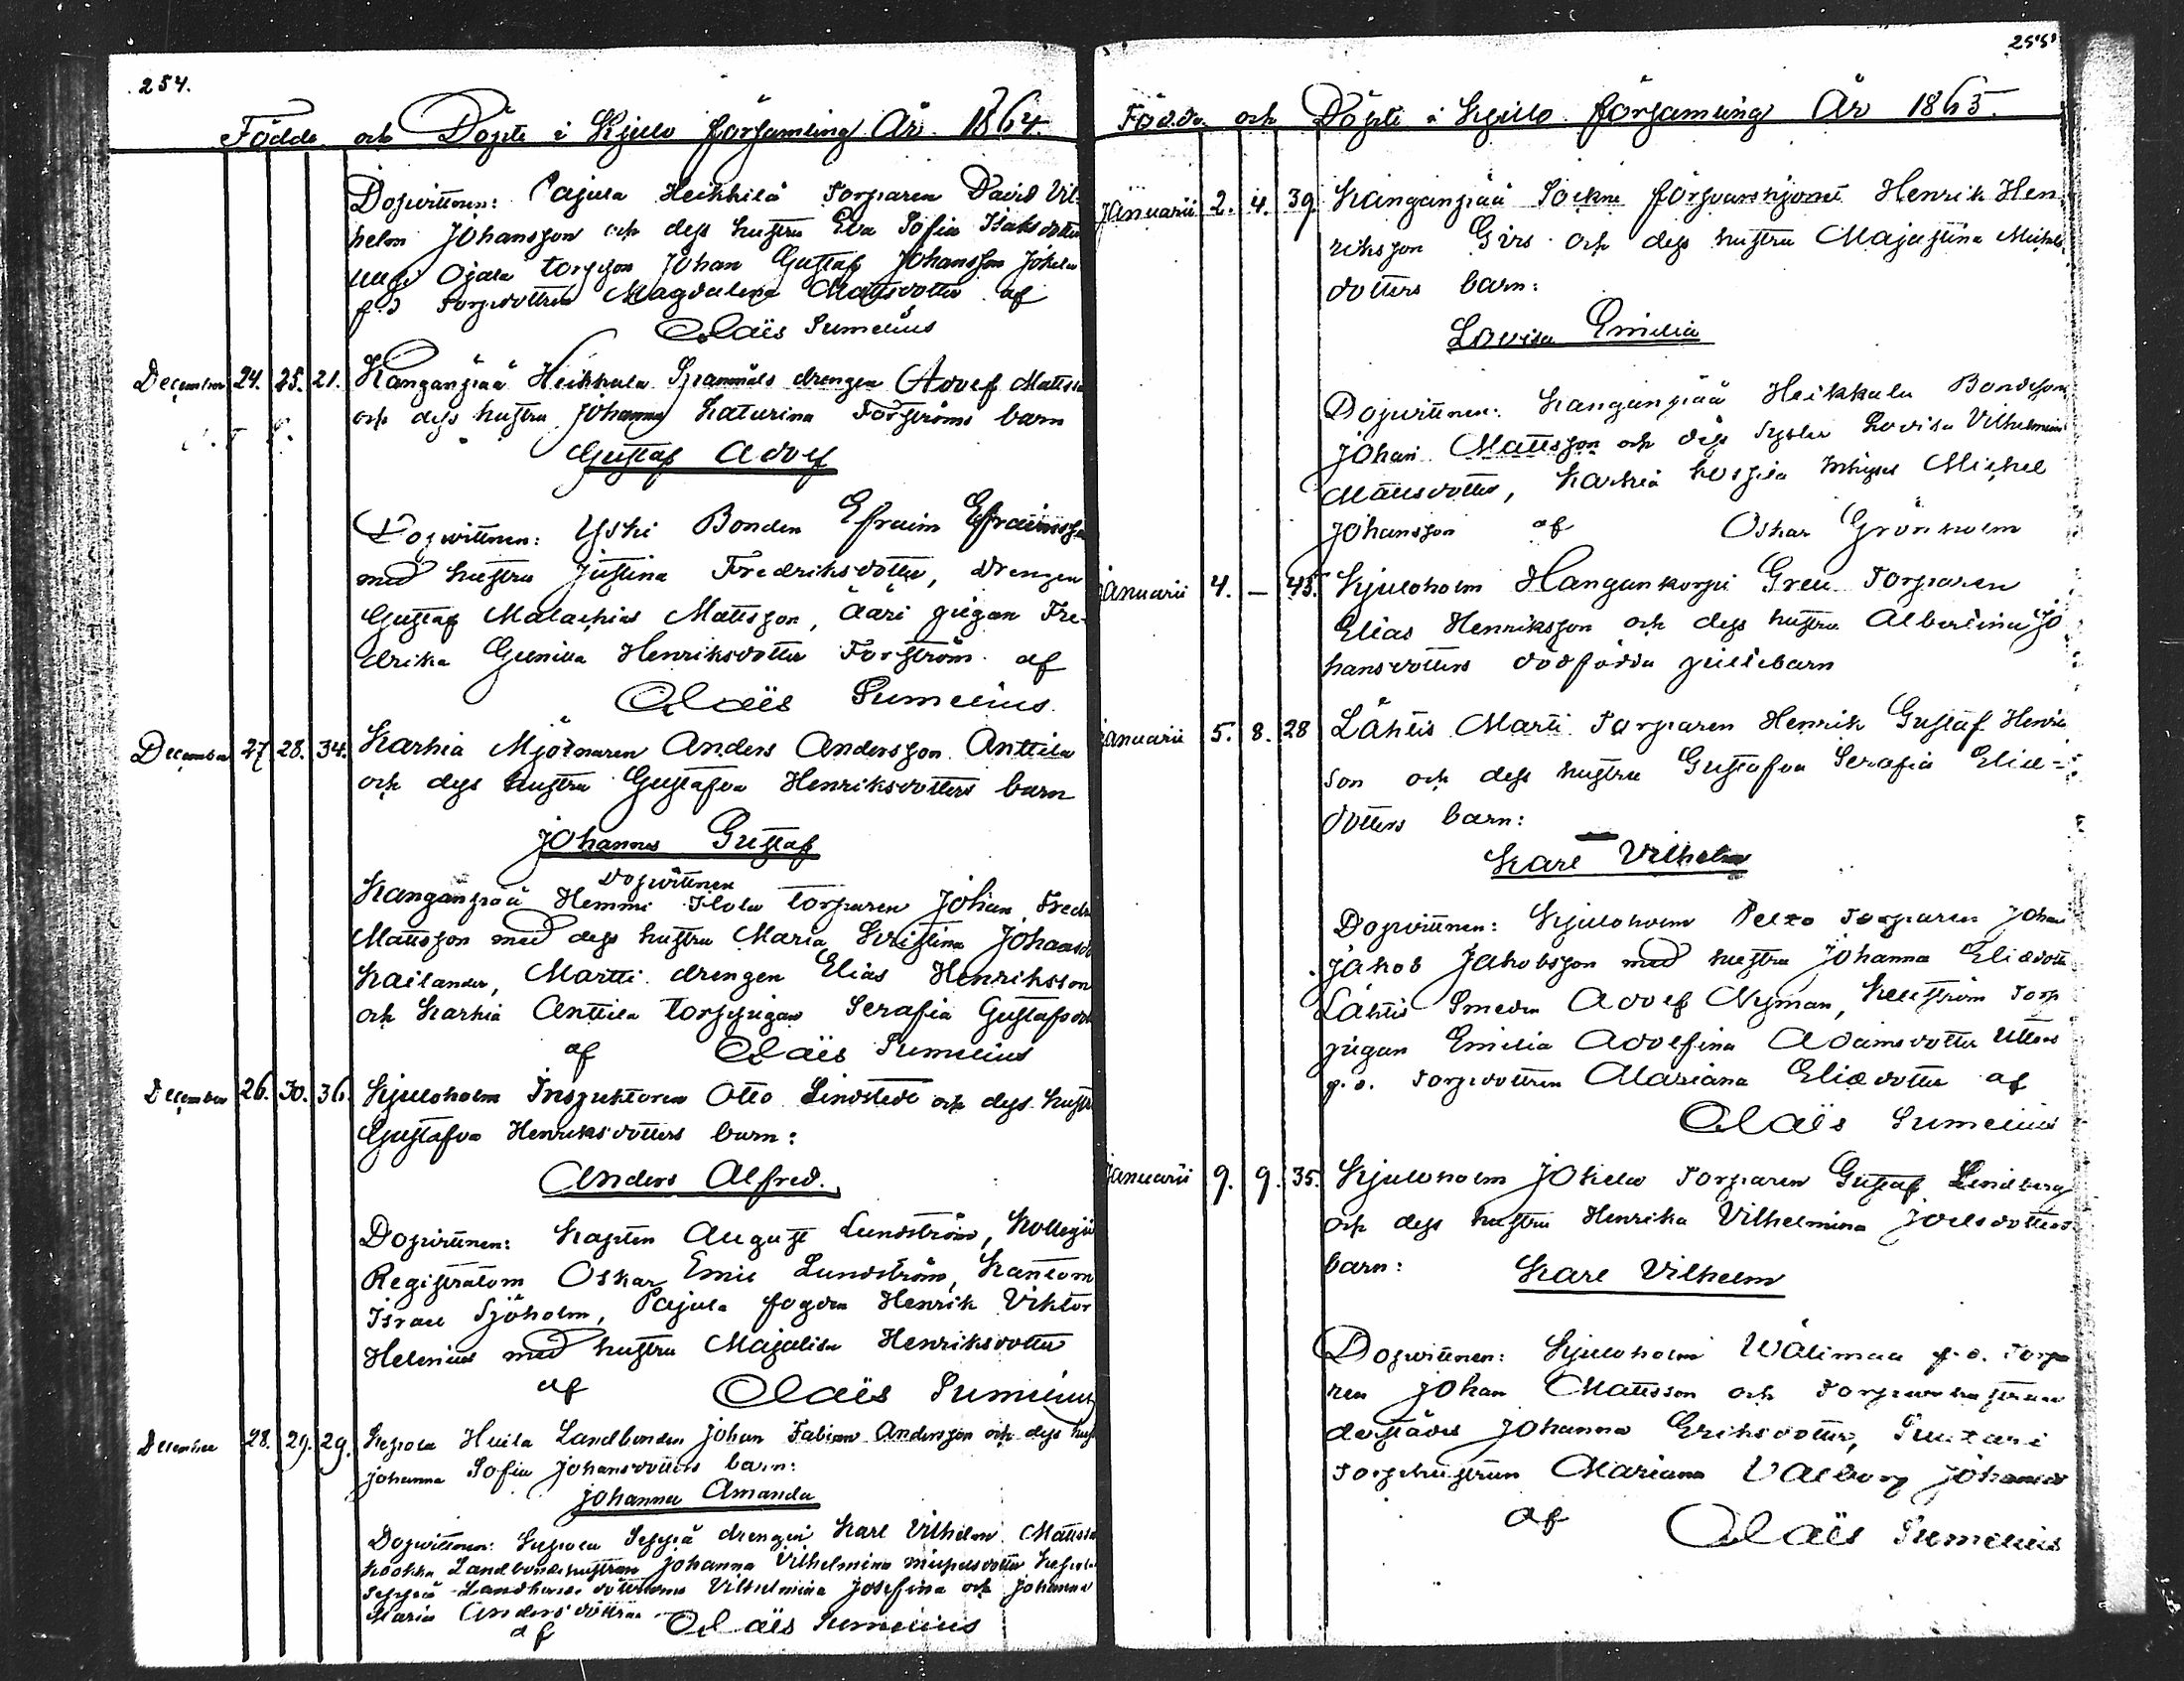 254.
Födde och Döpte i Kjulo församling År 1864.
Dopvittnen: Pajula Heikkilä Torparen David Vil-
helm Johansson och dess hustru Eva Sofia Isaksdotter
Ojala torpson Johan Gustaf Johansson Jokela
f.d Torpdottren Magdalena Mattsdotter af
Claës Sumelius
December 24. 25. 21. Kanganpää Heikkula Spanmåls drengen Adolf Mattsson
och dess hustru Johanna Katarina Forströms barn
Gustaf Adolf
Dopvittnen: Yski Bonden Efraim Efraimsson
med hustru Justina Fredriksdotter, drengen
Gustaf Malachias Mattsson, Ääri pigan Fre-
drika Gunilla Henriksdotter Forström af
Claës Sumelius.
December 27. 28. 34. Karhia Mjölnaren Anders Andersson Anttila
och dess hustru Gustafva Henriksdotters barn
Johannes Gustaf
Dopvittnen
Kanganpää Hemmi Ilola torparen Johan Fredr
Mattsson med dess hustru Maria Kristina Johansd
Kailander, Martti drengen Elias Henriksson
och Karhia Anttila torppigan Serafia Gustafsdot
af Claës Sumelius
December 26. 30. 36. Kjuloholm Inspektoren Otto Lindstedt och dess hustr
Gustafva Henriksdotters barn:
Anders Alfred.
Dopvittnen: Kapten August Lundström, Kollegii
Registratorn Oskar Emil Lundström, Kantorn
Israel Sjöholm, Pajula fogden Henrik Viktor
Helenius med hustru Majalisa Henriksdotter
af Claës Sumelius
December 28. 29. 29. Kepola Huila Landbonden Johan Fabian Andersson och dess hust
Johanna Sofia Johansdotters barn:
Johanna Amanda
Dopvittnen: Kepola Seppä drengen Karl Vilhelm Mattsson
Landbondehustrun Johanna Vilhelmina Michelsdotter Kepola
Seppä Landbonde döttrarna Vilhelmina Josefina och Johanna
Maria Andersdöttrar
af Claës Sumelius
255
Födde och Döpte i Kjulo församling År 1865.
Januarii 2. 4. 39. Kanganpää Sockne försvarshjonet Henrik Hen-
riksson Girs och dess hustru Majastina Michels
dotters barn:
Lovisa Emilia
Dopvittnen: Kanganpää Heikkula Bondeson
Johan Mattsson och dess syster Lovisa Vilhelmina
Mattsdotter, Karhia Inhyses Michel
Johansson af Oskar Grönholm
Januarii 4. — 43. Kjuloholm Hangankorpi Greu Torparen
Elias Henriksson och dess hustru Albertina Jo
hansdotters dödfödda gossebarn
Januarii 5. 8. 28 Lähtis Marti Torparen Henrik Gustaf Henrik
son och dess hustru Gustafva Serafia Eliæ=
dotters barn:
Karl Vilhelm
Dopvittnen: Kjuloholm Pelto Torparen Johan
Jakob Jakobsson med hustru Johanna Eliædotter
Lähtis Smeden Adolf Nyman, Torp
pigan Emilia Adolfina Adamsdotter
f.d. Torpdottren Mariana Eliædotter af
Claës Sumelius
Januarii 9. 9. 35. Kjuloholm Jokela Torparen Gustaf Lindberg
och dess hustru Henrika Vilhelmina Joelsdotters
barn: Karl Vilhelm
Dopvittnen: Kjuloholm Wälimaa f.d. Torpa
ren Johan Mattsson och Torparehustrun
derstädes Johanna Eriksdotter, Suutari
Torphustrun Mariana Valborg Johansd
af Claës Sumelius